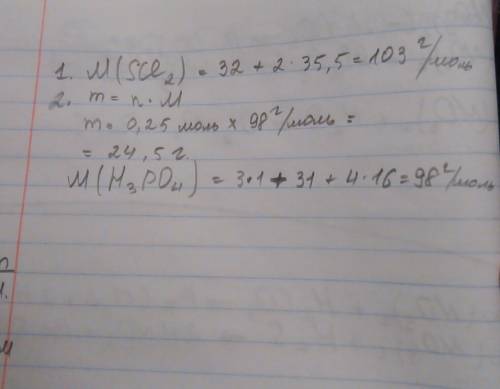 1. M(SCl₂) = 32 + 2·35,5 = 103 г/моль
2. m = n·M
m = 0,25 моль × 98 г/моль =
= 24,5 г.
M(H₃PO₄) = 3·1 + 31 + 4·16 = 98 г/моль